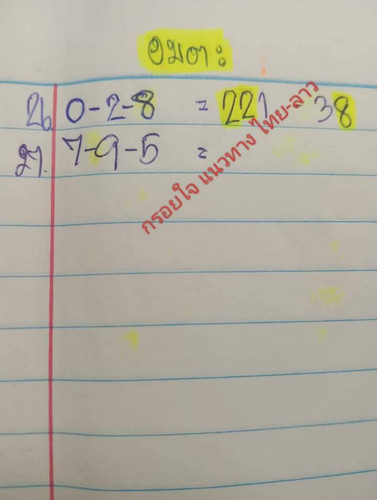 อมตะ
26. 0-2-8 = 221 38
27. 7-9-5 =
กรอยใจ แนวทาง ไทย-ลาว